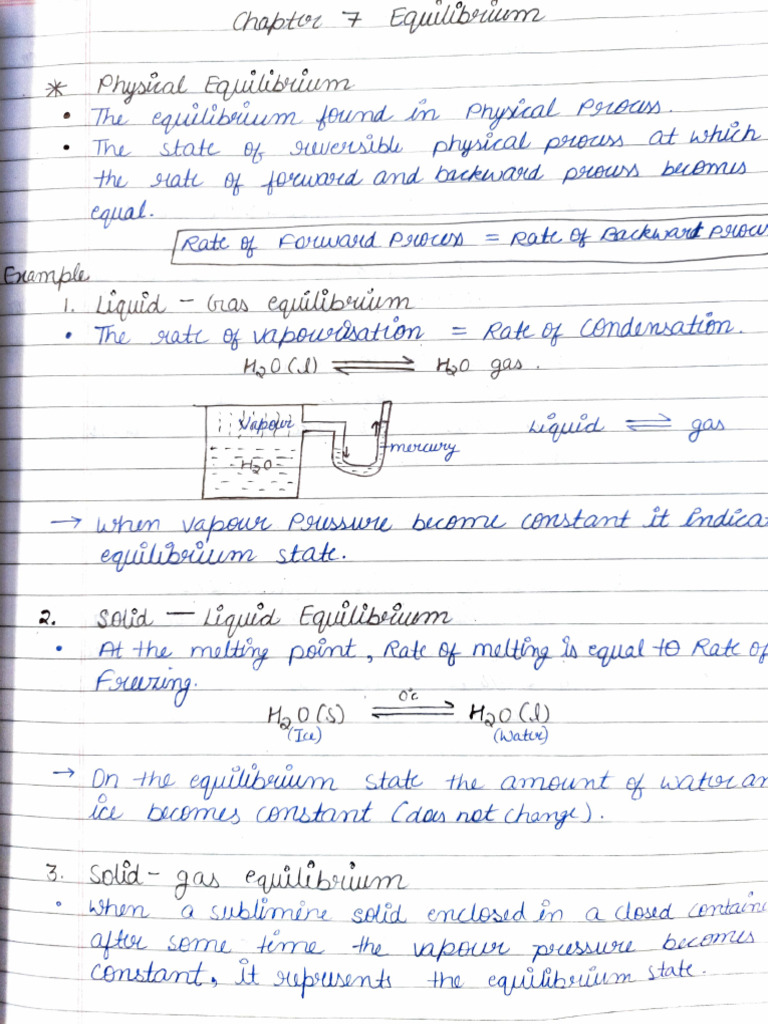 Chapter 7 Equilibrium
* Physical Equilibrium
• The equilibrium found in Physical Process.
• The state of reversible physical process at which
the rate of forward and backward process becomes
equal.
Rate of Forward Process = Rate of Backward Proces
Example
1. Liquid - Gas equilibrium
• The rate of vapourisation = Rate of Condensation.
H₂O(l) ⇌ H₂O gas.
Vapour
H₂O
mercury
Liquid ⇌ gas
→ When vapour Pressure become constant it indica
equilibrium state.
2. Solid — Liquid Equilibrium
• At the melting point, Rate of melting is equal to Rate of
Freezing.
0°c
H₂O(s) ⇌ H₂O(l)
(Ice) (Water)
→ On the equilibrium state the amount of water an
ice becomes constant (does not change).
3. Solid - gas equilibrium
• When a sublimine solid enclosed in a closed containe
after some time the vapour pressure becomes
constant, it represents the equilibrium state.